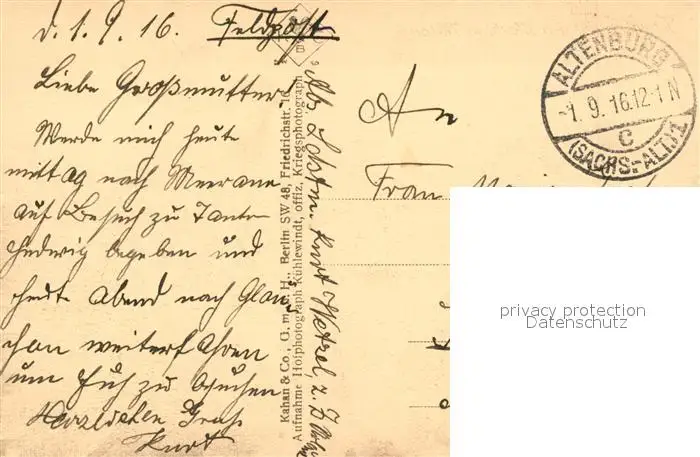 d. 1. 9. 16. Feldpost
Liebe Großmutter!
Werde mich heute
mittag nach Meerane
auf Besuch zu Tante
Hedwig begeben und
heute Abend nach Glau-
chau weiterfahren
um Euch zu besuchen
Herzlichen Gruß
Kurt
Kahan & Co., G. m. b. H., Berlin SW 48, Friedrichstr. 16
Aufnahme Hofphotograph Kühlewindt, offiz. Kriegsphotograph
Abs. Kurt Wetzel, z. Z.
An
Frau
ALTENBURG
-1. 9. 16. 12-1 N
C
(SACHS.-ALT.) 1
privacy protection
Datenschutz